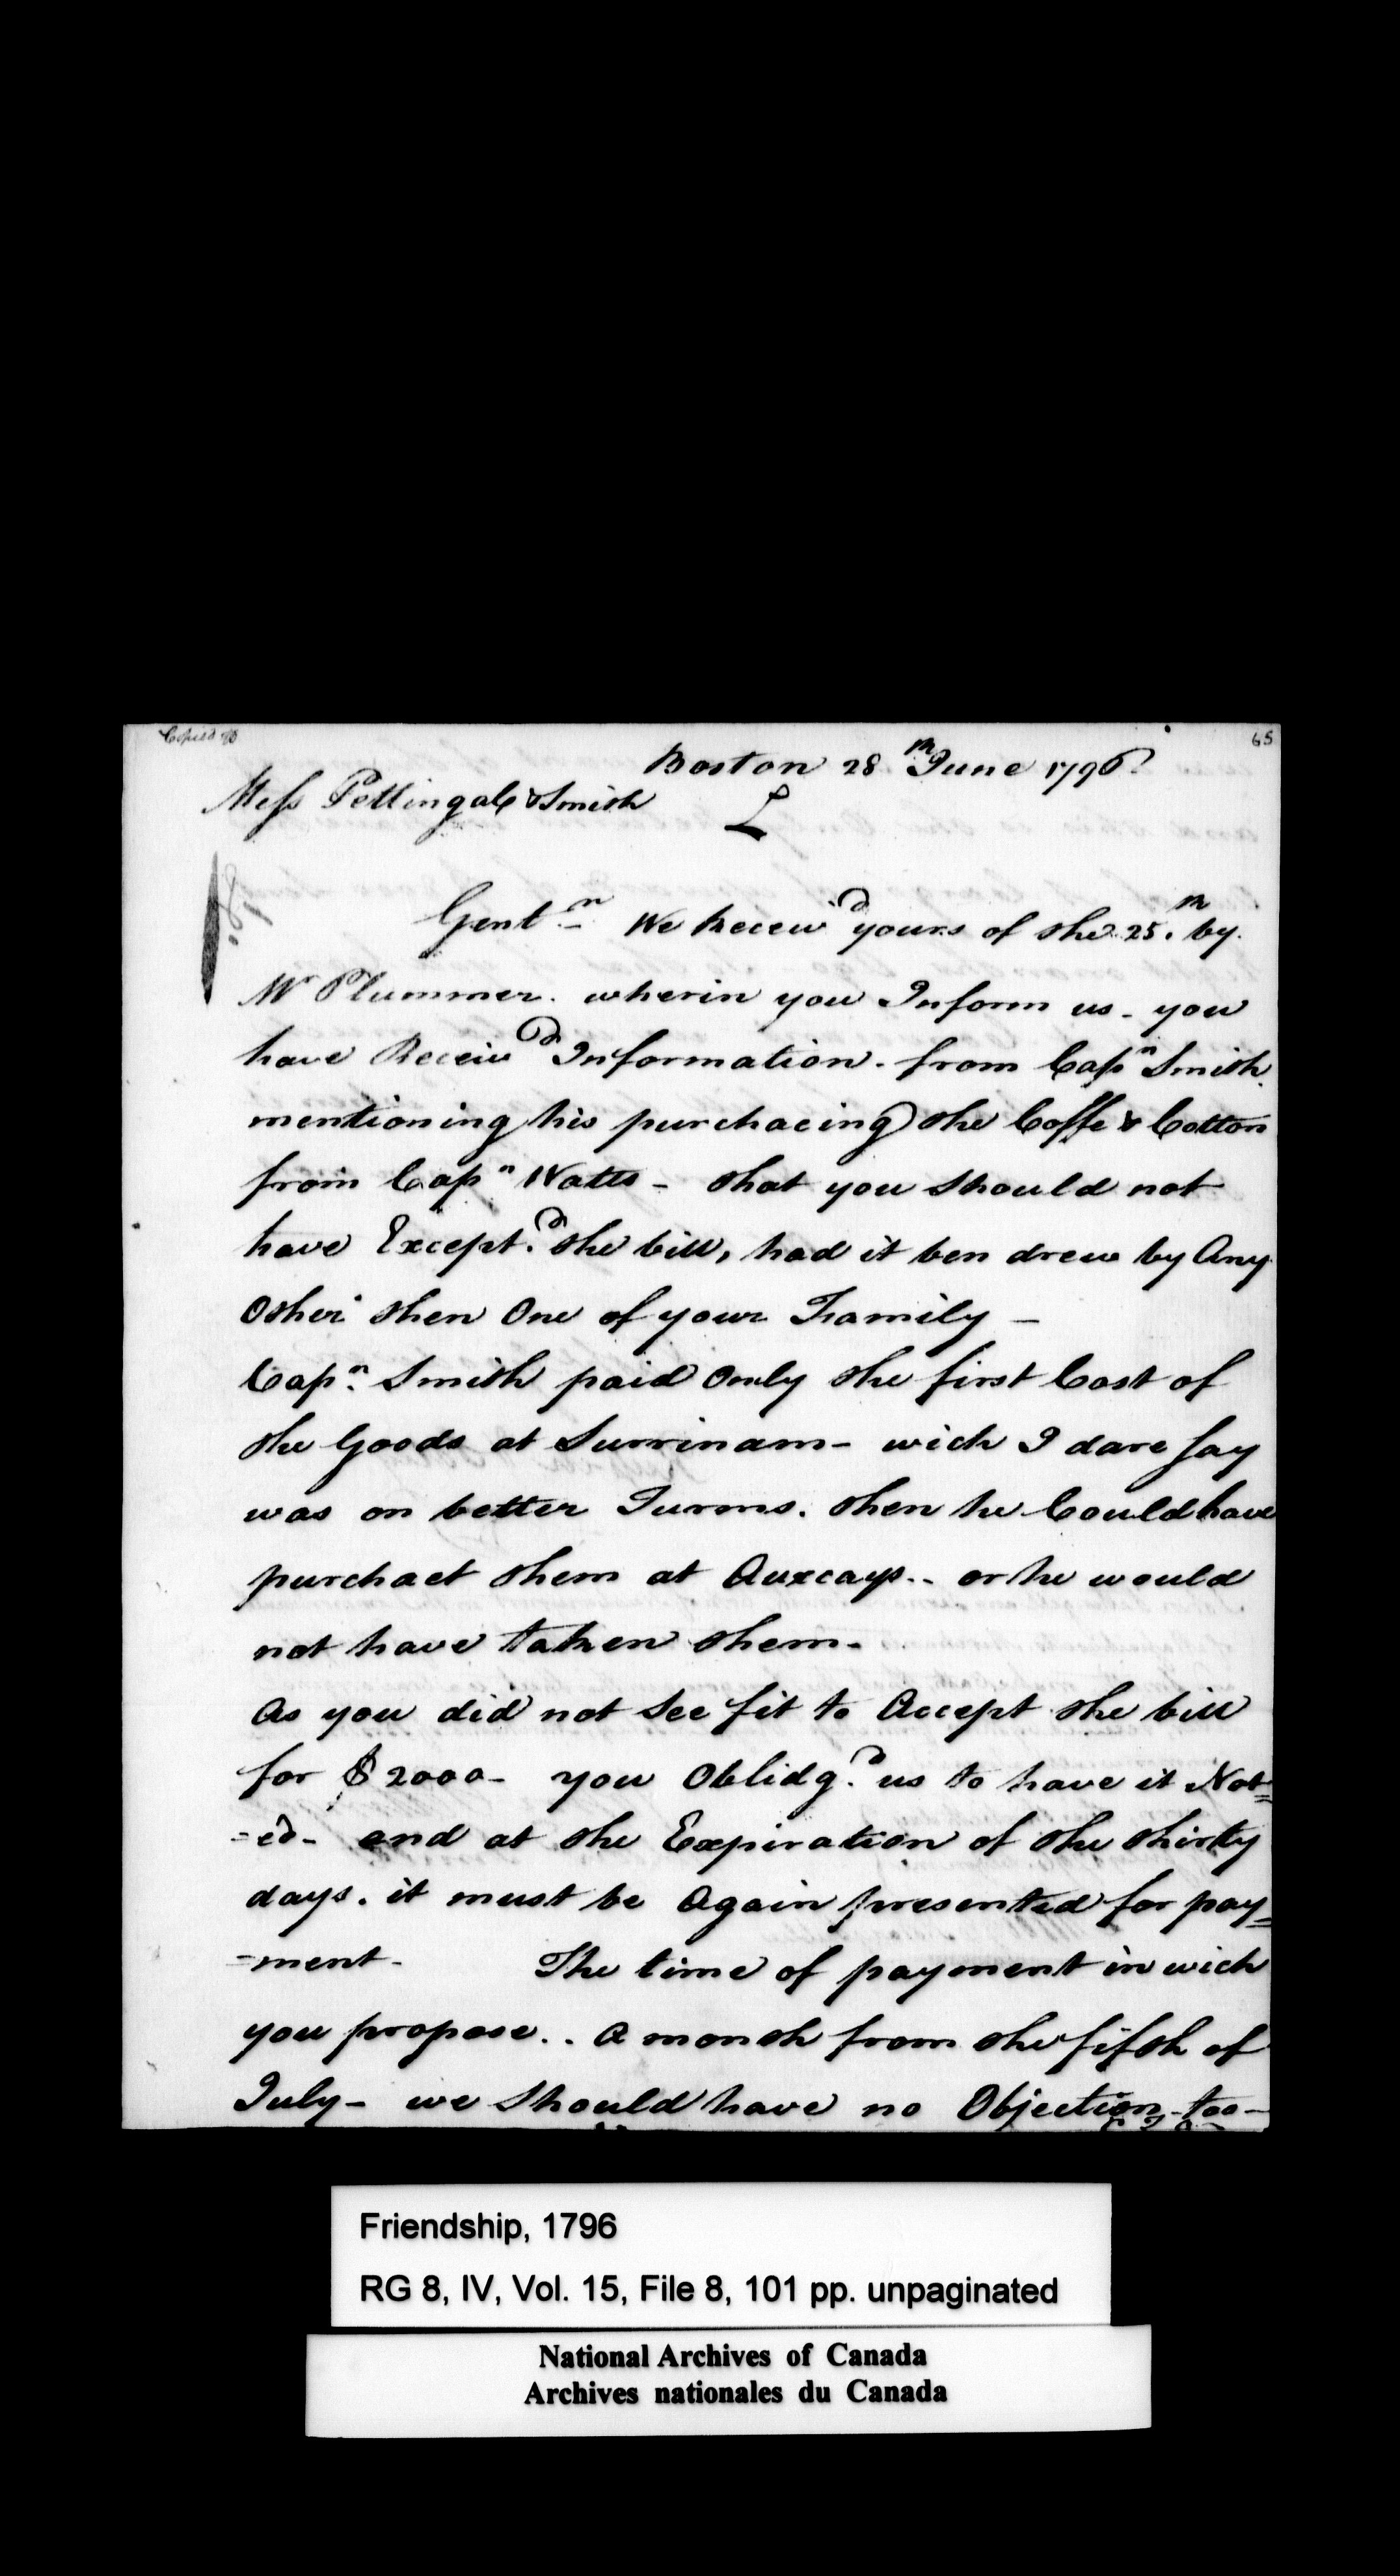 Copied
65
Boston 28th June 1796
Mess Pettingale & Smith
L
Gentn We Receivd yours of the 25th by
Mr Plummer. wherin you Inform us - you
have Receivd Information. from Capn Smith
mentioning his purchaceing the Coffe & Cotton
from Capn Watts - that you should not
have Exceptd the bill, had it ben drew by Any
Other then One of your Family -
Capn Smith paid Only the first Cost of
the Goods at Surrinam - wich I dare say
was on better Turms. then he Could have
purchact them at Auxcays.. or he would
not have taken them -
As you did not See fit to Accept the bill
for $2000 - you Oblidgd us to have it Not=
=ed - and at the Expiration of the thirty
days. it must be Again presented for pay=
=ment - The time of payment in wich
you propose.. a month from the fifth of
July - we should have no Objection too -
Friendship, 1796
RG 8, IV, Vol. 15, File 8, 101 pp. unpaginated
National Archives of Canada
Archives nationales du Canada